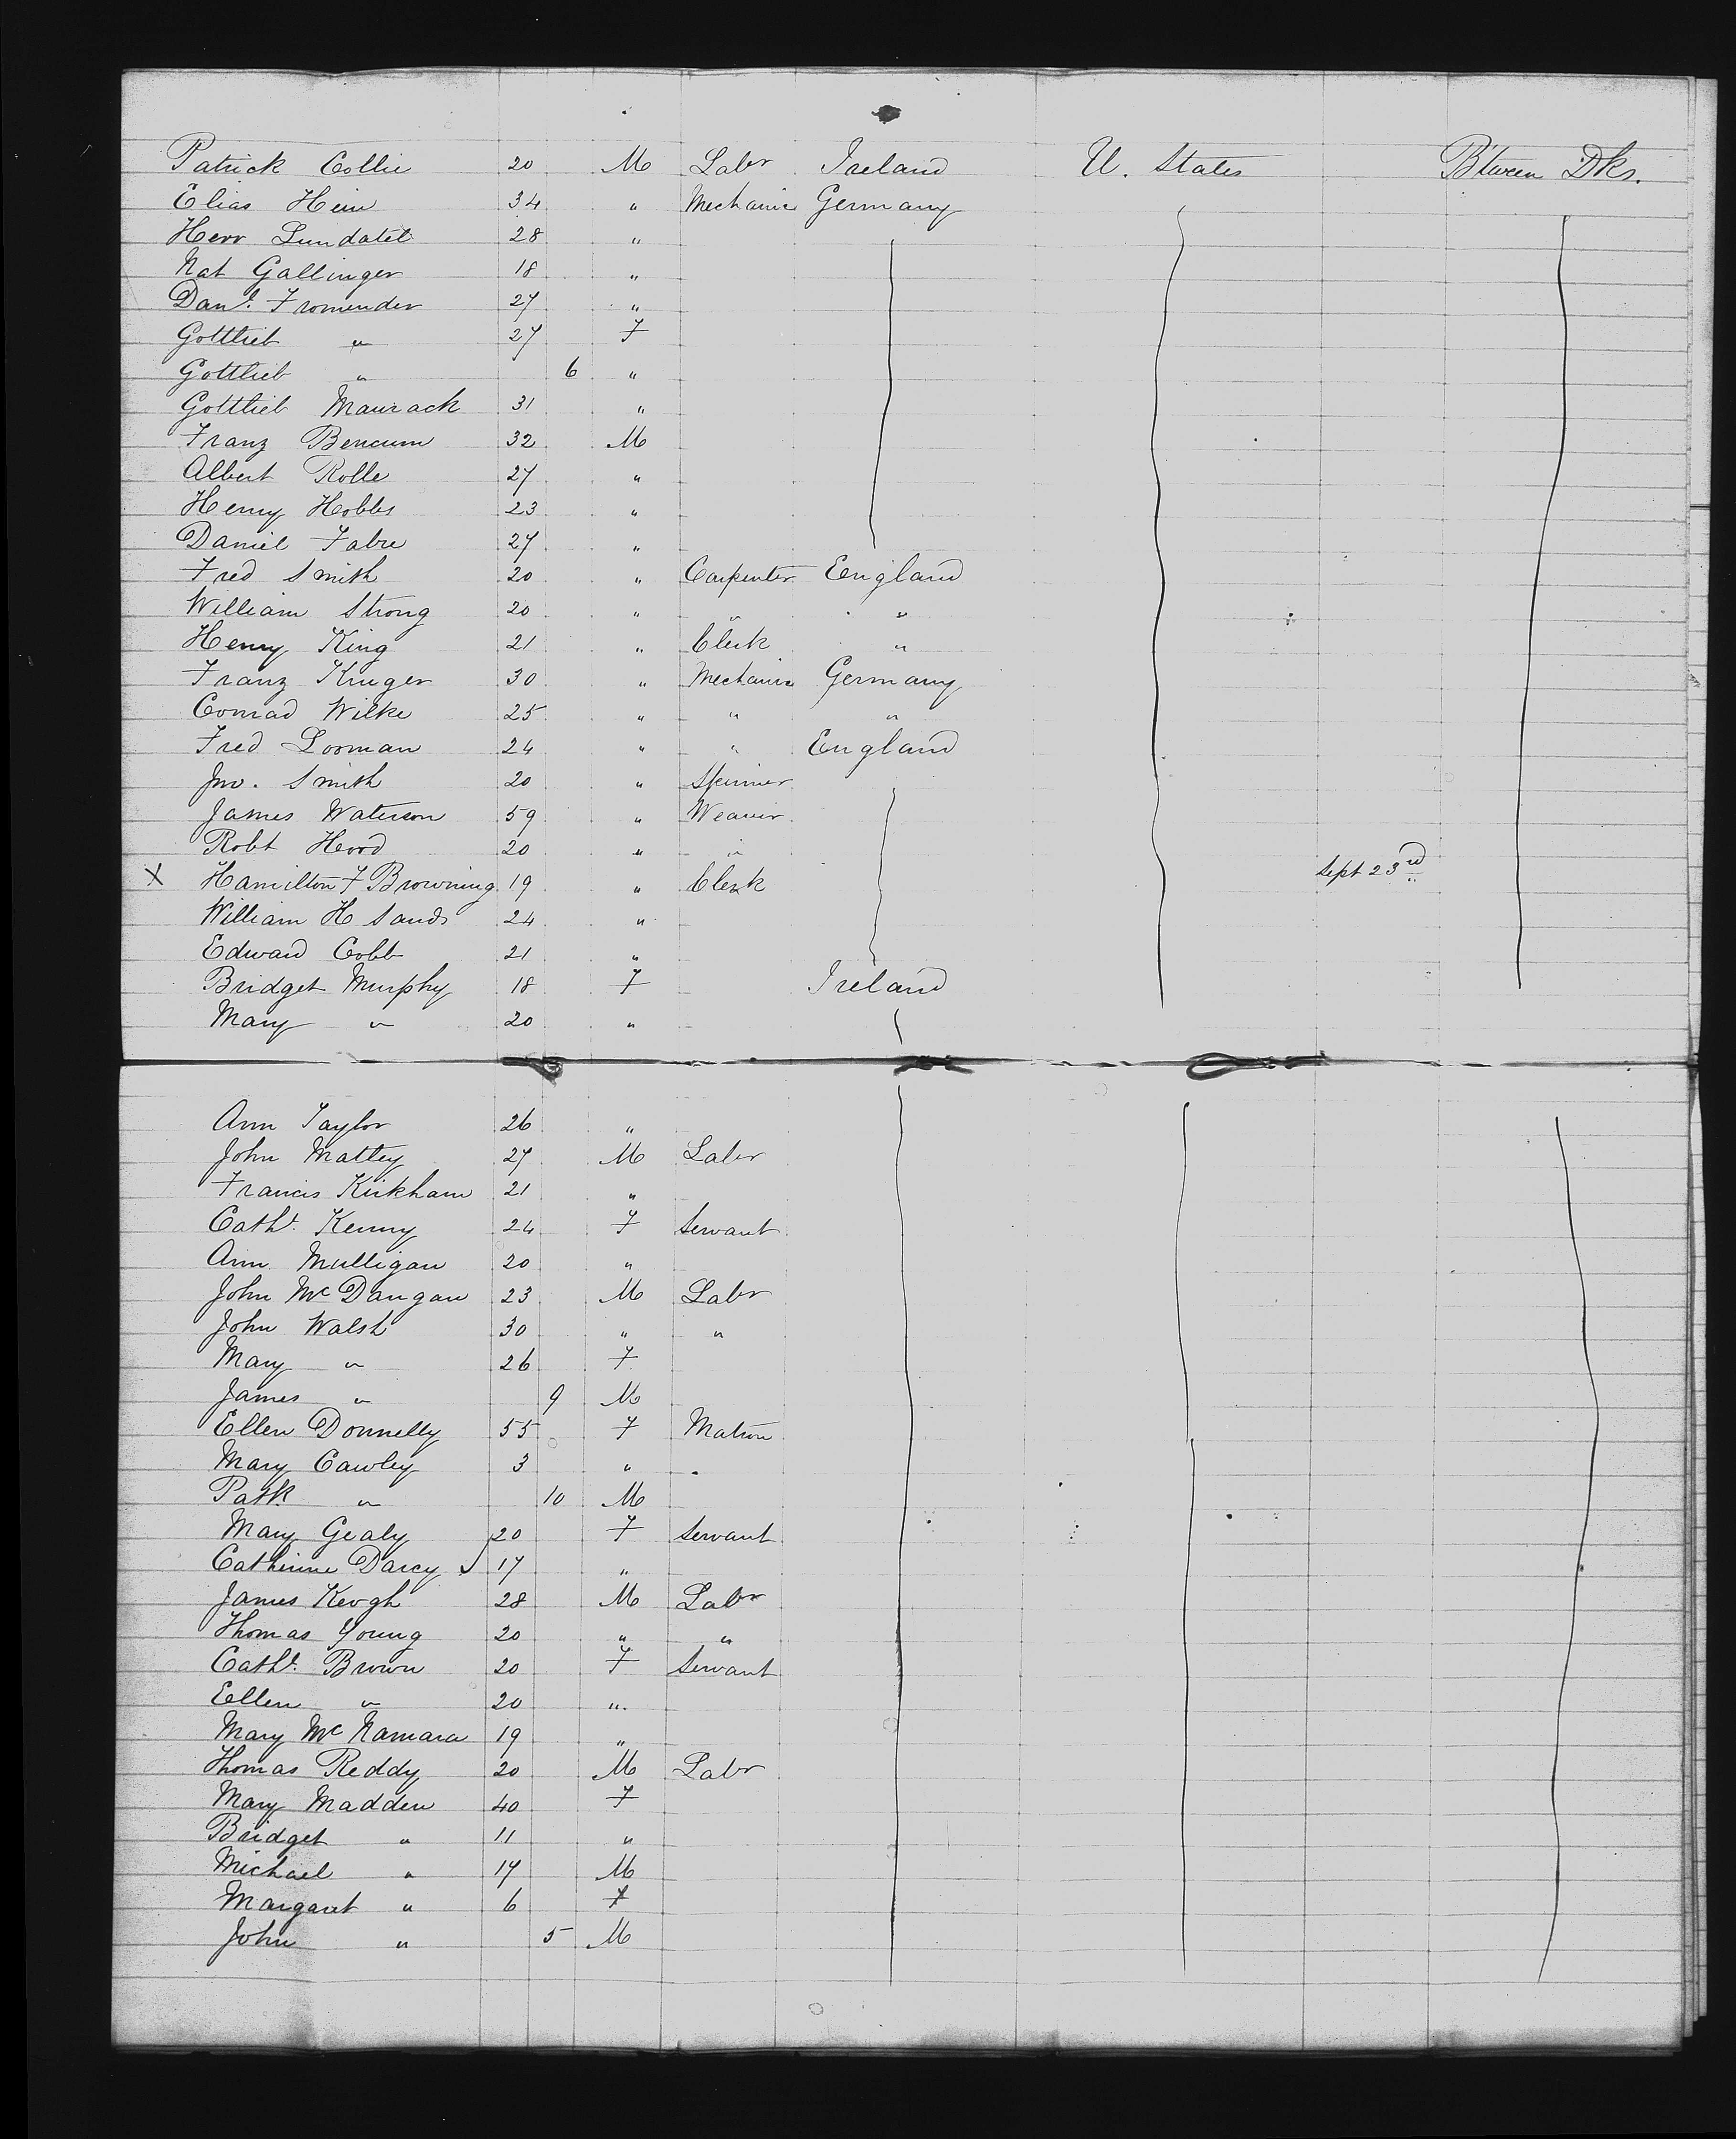 Patrick Collie 20 M Labr Ireland U. States B'tween Dks.
Elias Hein 34 " Mechanic Germany
Herr Lundatel 28 "
Nat Gallinger 18 "
Danl. Fromender 27 "
Gottlieb " 27 F
Gottlieb " 6 "
Gottlieb Maurack 31 "
Franz Bencum 32 M
Albert Rolle 27 "
Henry Hobbs 23 "
Daniel Fabre 27 "
Fred Smith 20 " Carpenter England
William Strong 20 " " "
Henry King 21 " Clerk "
Franz Kruger 30 " Mechanic Germany
Conrad Wilke 25 " " "
Fred Looman 24 " " England
Jno. Smith 20 " Spinner
James Waterson 59 " Weaver
Robt Hood 20 " "
X Hamilton F Browning 19 " Clerk Sept 23rd
William H Sands 24 "
Edward Cobb 21 "
Bridget Murphy 18 F Ireland
Mary " 20 "
Ann Taylor 26 "
John Mattey 27 M Labr
Francis Kirkham 21 "
Cathe. Kenny 24 F Servant
Ann Mulligan 20 "
John McDangan 23 M Labr
John Walsh 30 " "
Mary " 26 F
James " 9 M
Ellen Donnelly 55 F Matron
Mary Cawley 3 "
Patk " 10 M
Mary Gealy 20 F Servant
Catherine Darcy 17 "
James Keogh 28 M Labr
Thomas Young 20 " "
Cathe. Brown 20 F Servant
Ellen " 20 "
Mary McNamara 19 "
Thomas Reddy 20 M Labr
Mary Madden 40 F
Bridget " 11 "
Michael " 17 M
Margaret " 6 F
John " 5 M